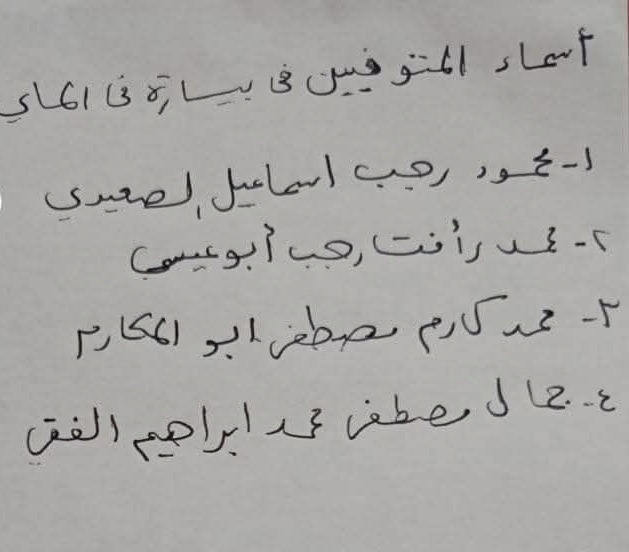 أسماء المتوفيين فى بيسارة فى الماي
١- محمود رجب اسماعيل الصعيدي
٢- محمد رأفت رجب أبوعيسى
٣- محمد كارم مصطفى ابو المكارم
٤- جمال مصطفى محمد ابراهيم الفقى